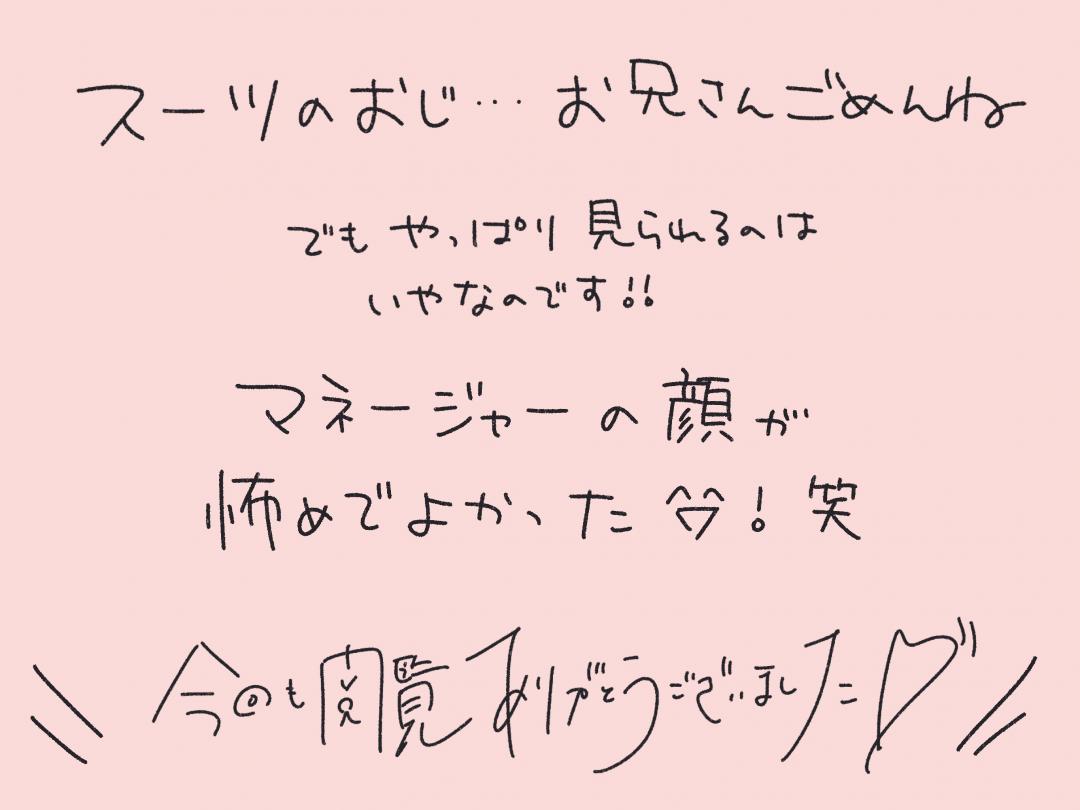 スーツのおじ… お兄さんごめんね
でも やっぱり 見られるのは
いやなのです!!
マネージャーの顔が
怖めでよかった! 笑
今回も閲覧ありがとうございました